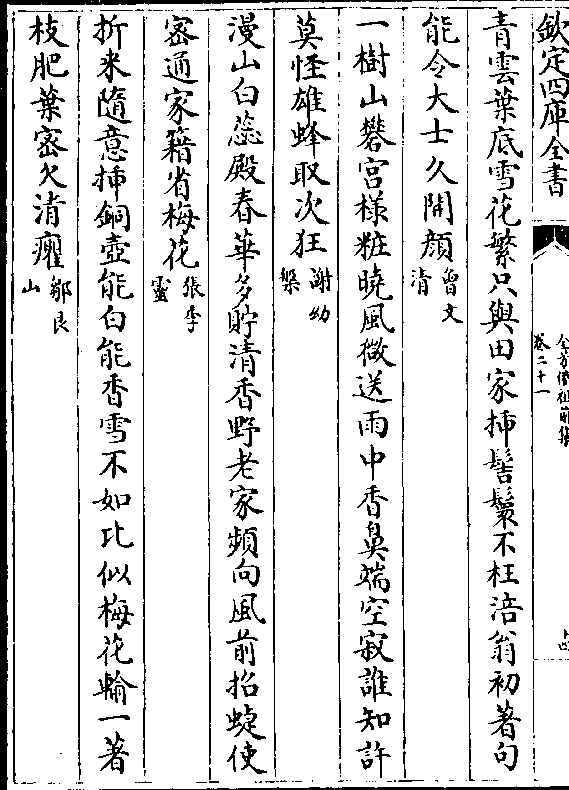 欽定四庫全書
全芳備祖前集
卷二十一
青雲葉底雪花繁只與田家揷髻鬟不枉涪翁初著句
能令大士久開顔曾文清
一樹山礬宫様粧曉風微送雨中香鼻端空寂誰知許
莫怪雄蜂取次狂謝幼槃
漫山白蕊殿春華多貯清香野老家頻向風前招蜨使
宻通家籍省梅花張季靈
折来隨意揷銅壺能白能香雪不如比似梅花輸一著
枝肥葉宻欠清癯鄒良山